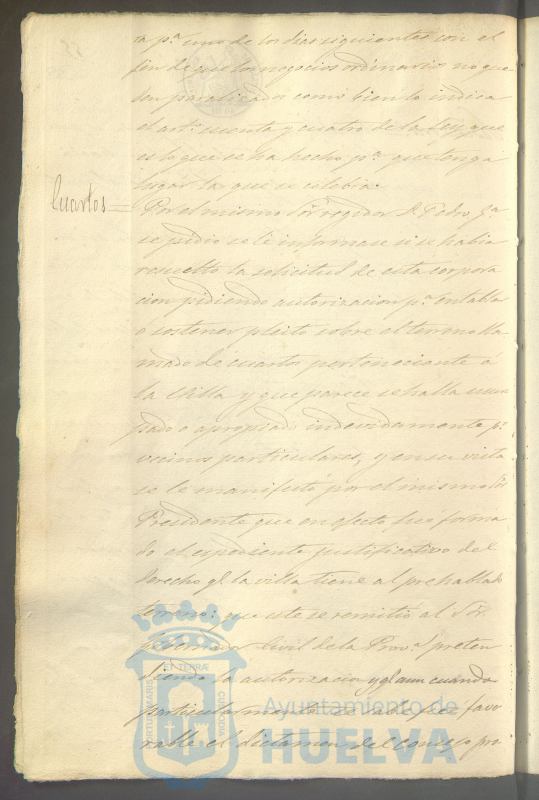 ra p.ª uno de los dias siguientes con el
fin de que los negocios ordinarios no que
den paralizados como bien lo indica
el art.º cuenta y cuatro de la Ley, que
es lo que se ha hecho p.ª que tenga
lugar la que se celebra.
Cuartos =
Por el mismo Sôr regidor D. Pedro G.ª
se pidio se le informase si se habia
resuelto la solicitud de esta corpora
cion pidiendo autorizacion p.ª entabla
o sostener pleito sobre el terreno lla
mado de cuartos perteneciente á
la Villa y que parece se halla usur
pado o apropiado indevidamente p.r
vecinos particulares, y en su vista
se le manifesto por el mismo Sôr
Presidente que en efecto fue forma
do el expediente justificativo del
derecho q.e la villa tiene al prehablado
terreno: que este se remitió al Sôr.
Governador Civil de la Prov.ª preten
diendo la autorizacion y q.e aun cuando
particularmente se sabe por favo
rable el dictamen del Consejo pro
PORTUS MARIS
ET TERRÆ
CUSTODIA
Ayuntamiento de
HUELVA